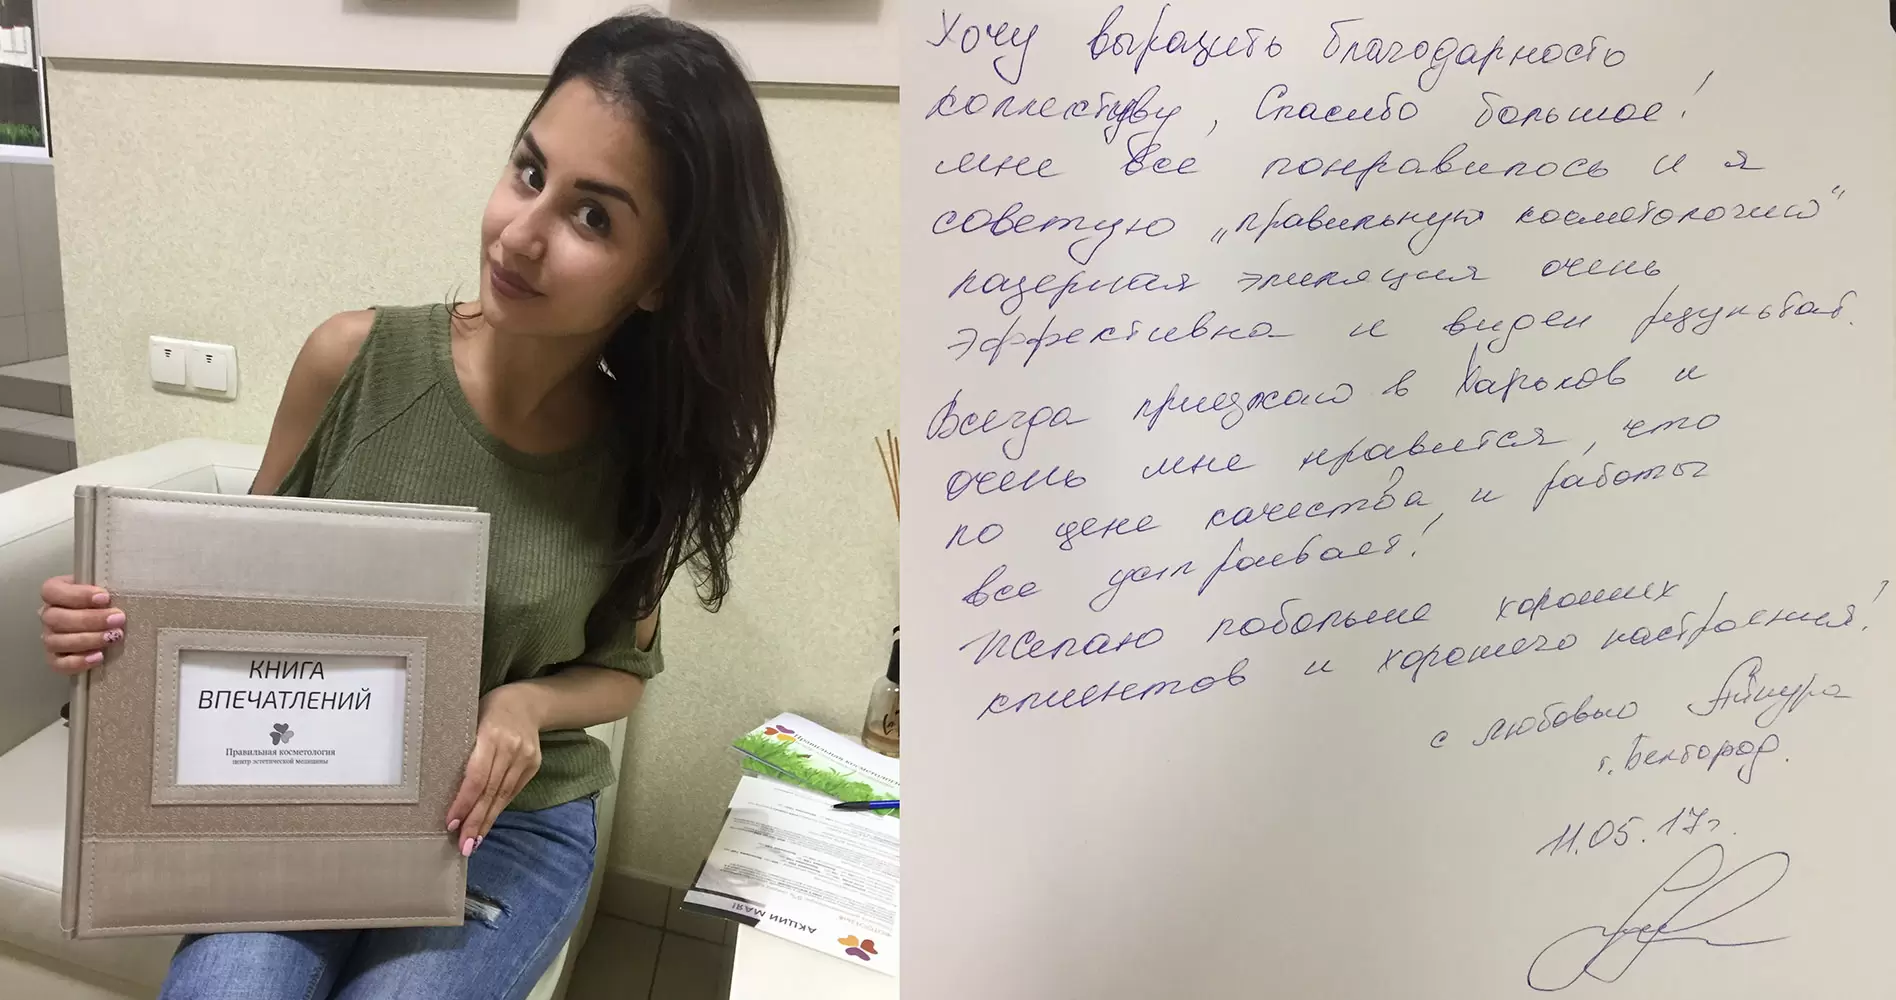 КНИГА
ВПЕЧАТЛЕНИЙ
Правильная косметология
центр эстетической медицины
Правильная косметология
АКЦИИ МАЯ!
Хочу выразить благодарность
коллективу, Спасибо большое!
мне все понравилось и я
советую „правильную косметологию“
лазерная эпиляция очень
эффективна и виден результат.
Всегда приезжаю в Харьков и
очень мне нравится, что
по цене качества и работы
все устраивает!
Желаю побольше хороших
клиентов и хорошего настроения!
с любовью Айнура
г. Белгород.
11.05.17г.